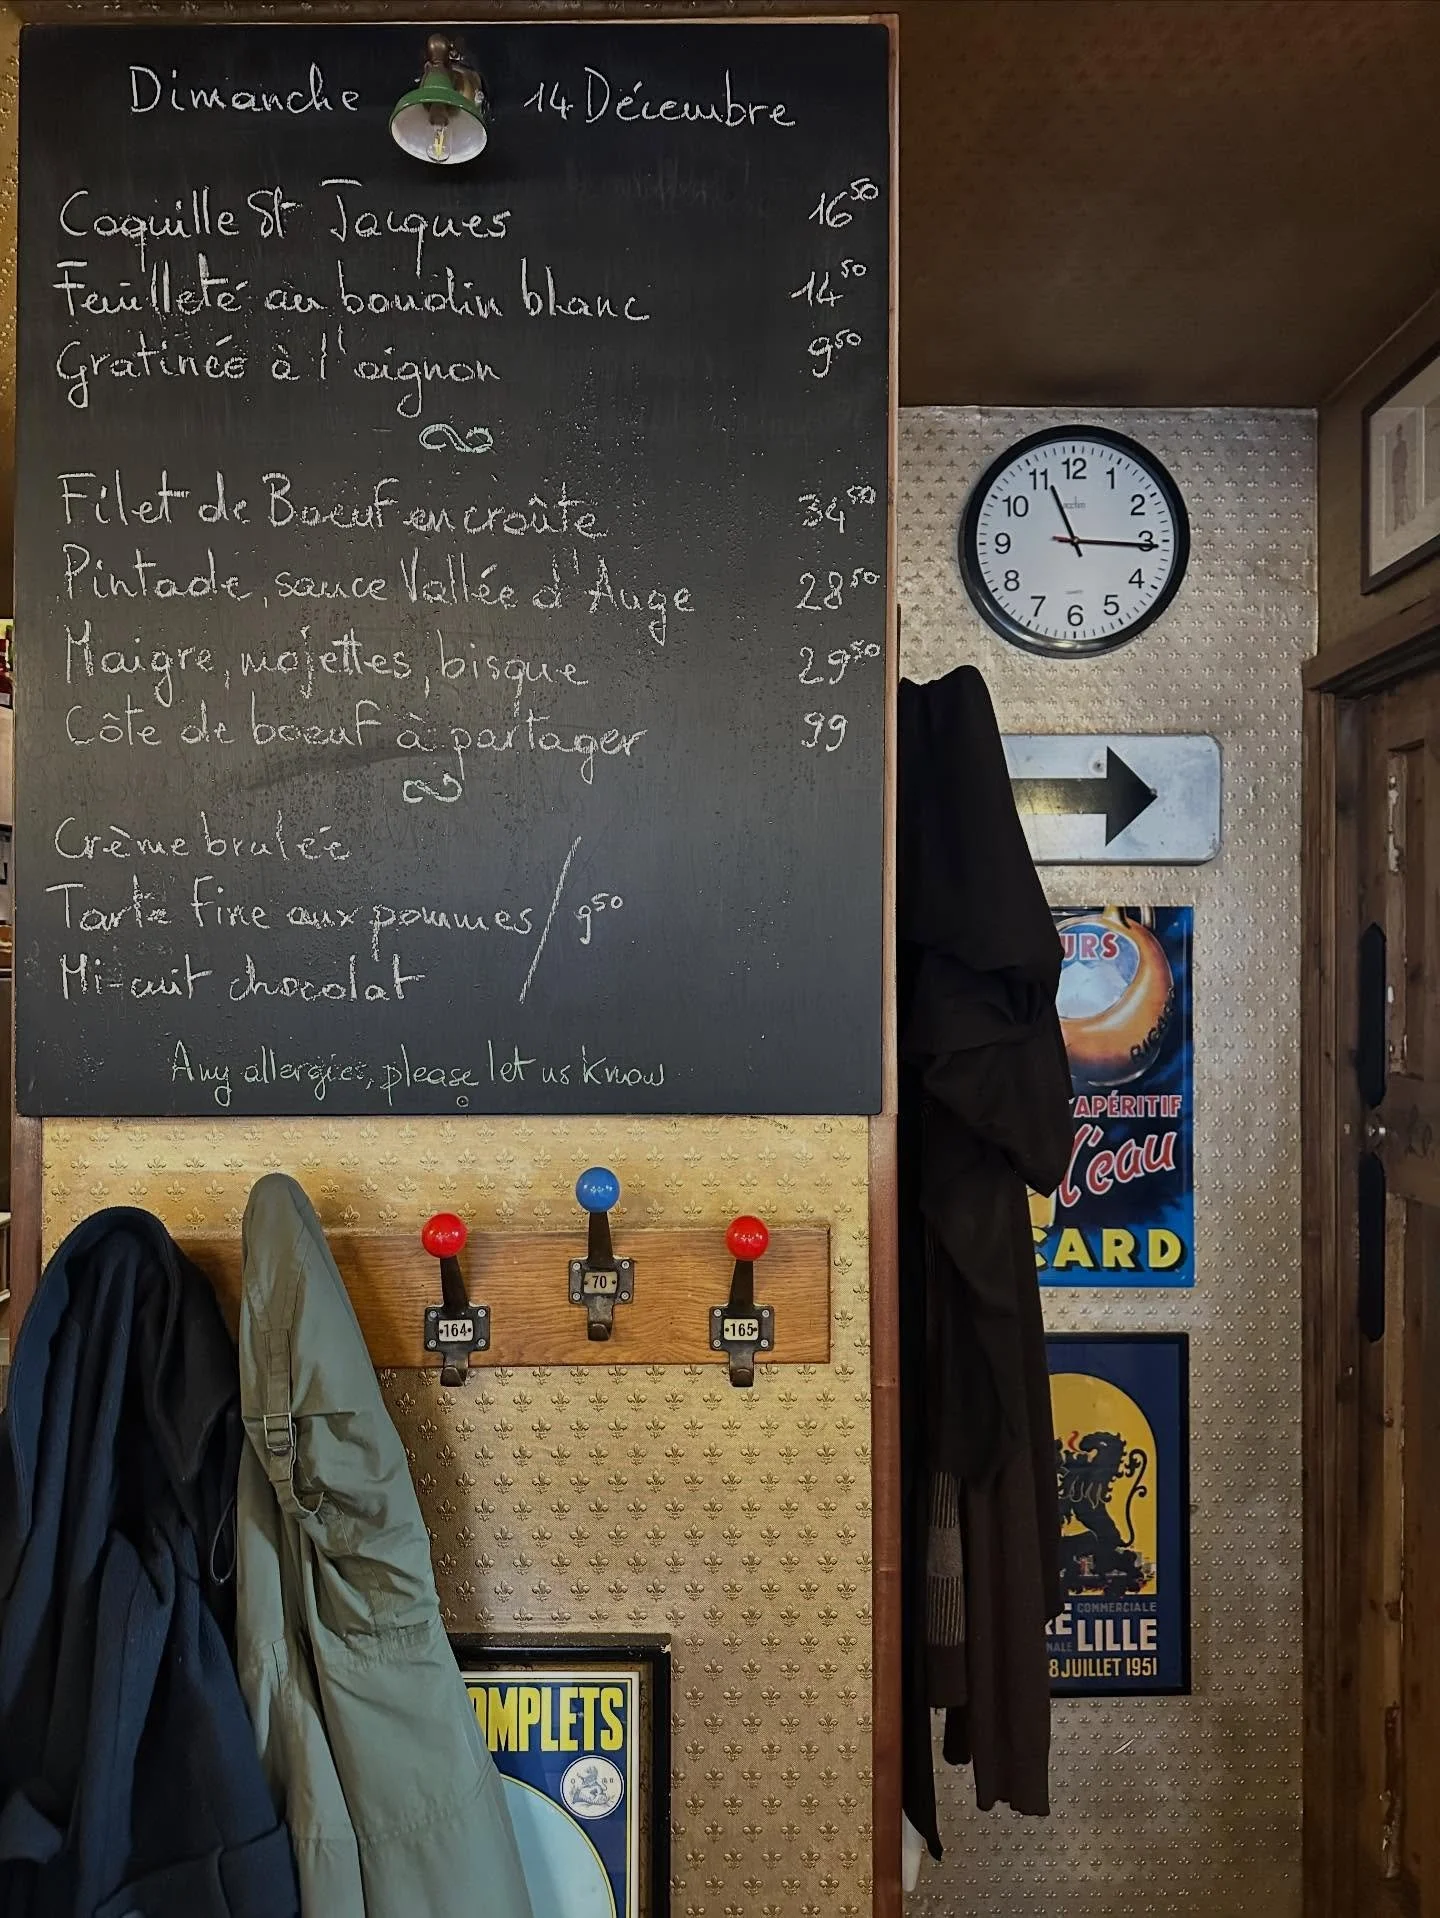 Dimanche 14 Décembre
Coquille St Jacques 16⁵⁰
Feuilleté au boudin blanc 14⁵⁰
Gratinée à l'oignon 9⁵⁰
Filet de Boeuf en croûte 34⁵⁰
Pintade, sauce Vallée d'Auge 28⁵⁰
Maigre, mojettes, bisque 29⁵⁰
Côte de boeuf à partager 99
Crème brulée
Tarte fine aux pommes / 9⁵⁰
Mi-cuit chocolat
Any allergies, please let us know
11 12 1
10 2
9 3
8 4
7 6 5
QUARTZ
URS
RICARD
L'APÉRITIF
l'eau
CARD
RE COMMERCIALE
NALE LILLE
8 JUILLET 1951
70
164 165
OMPLETS